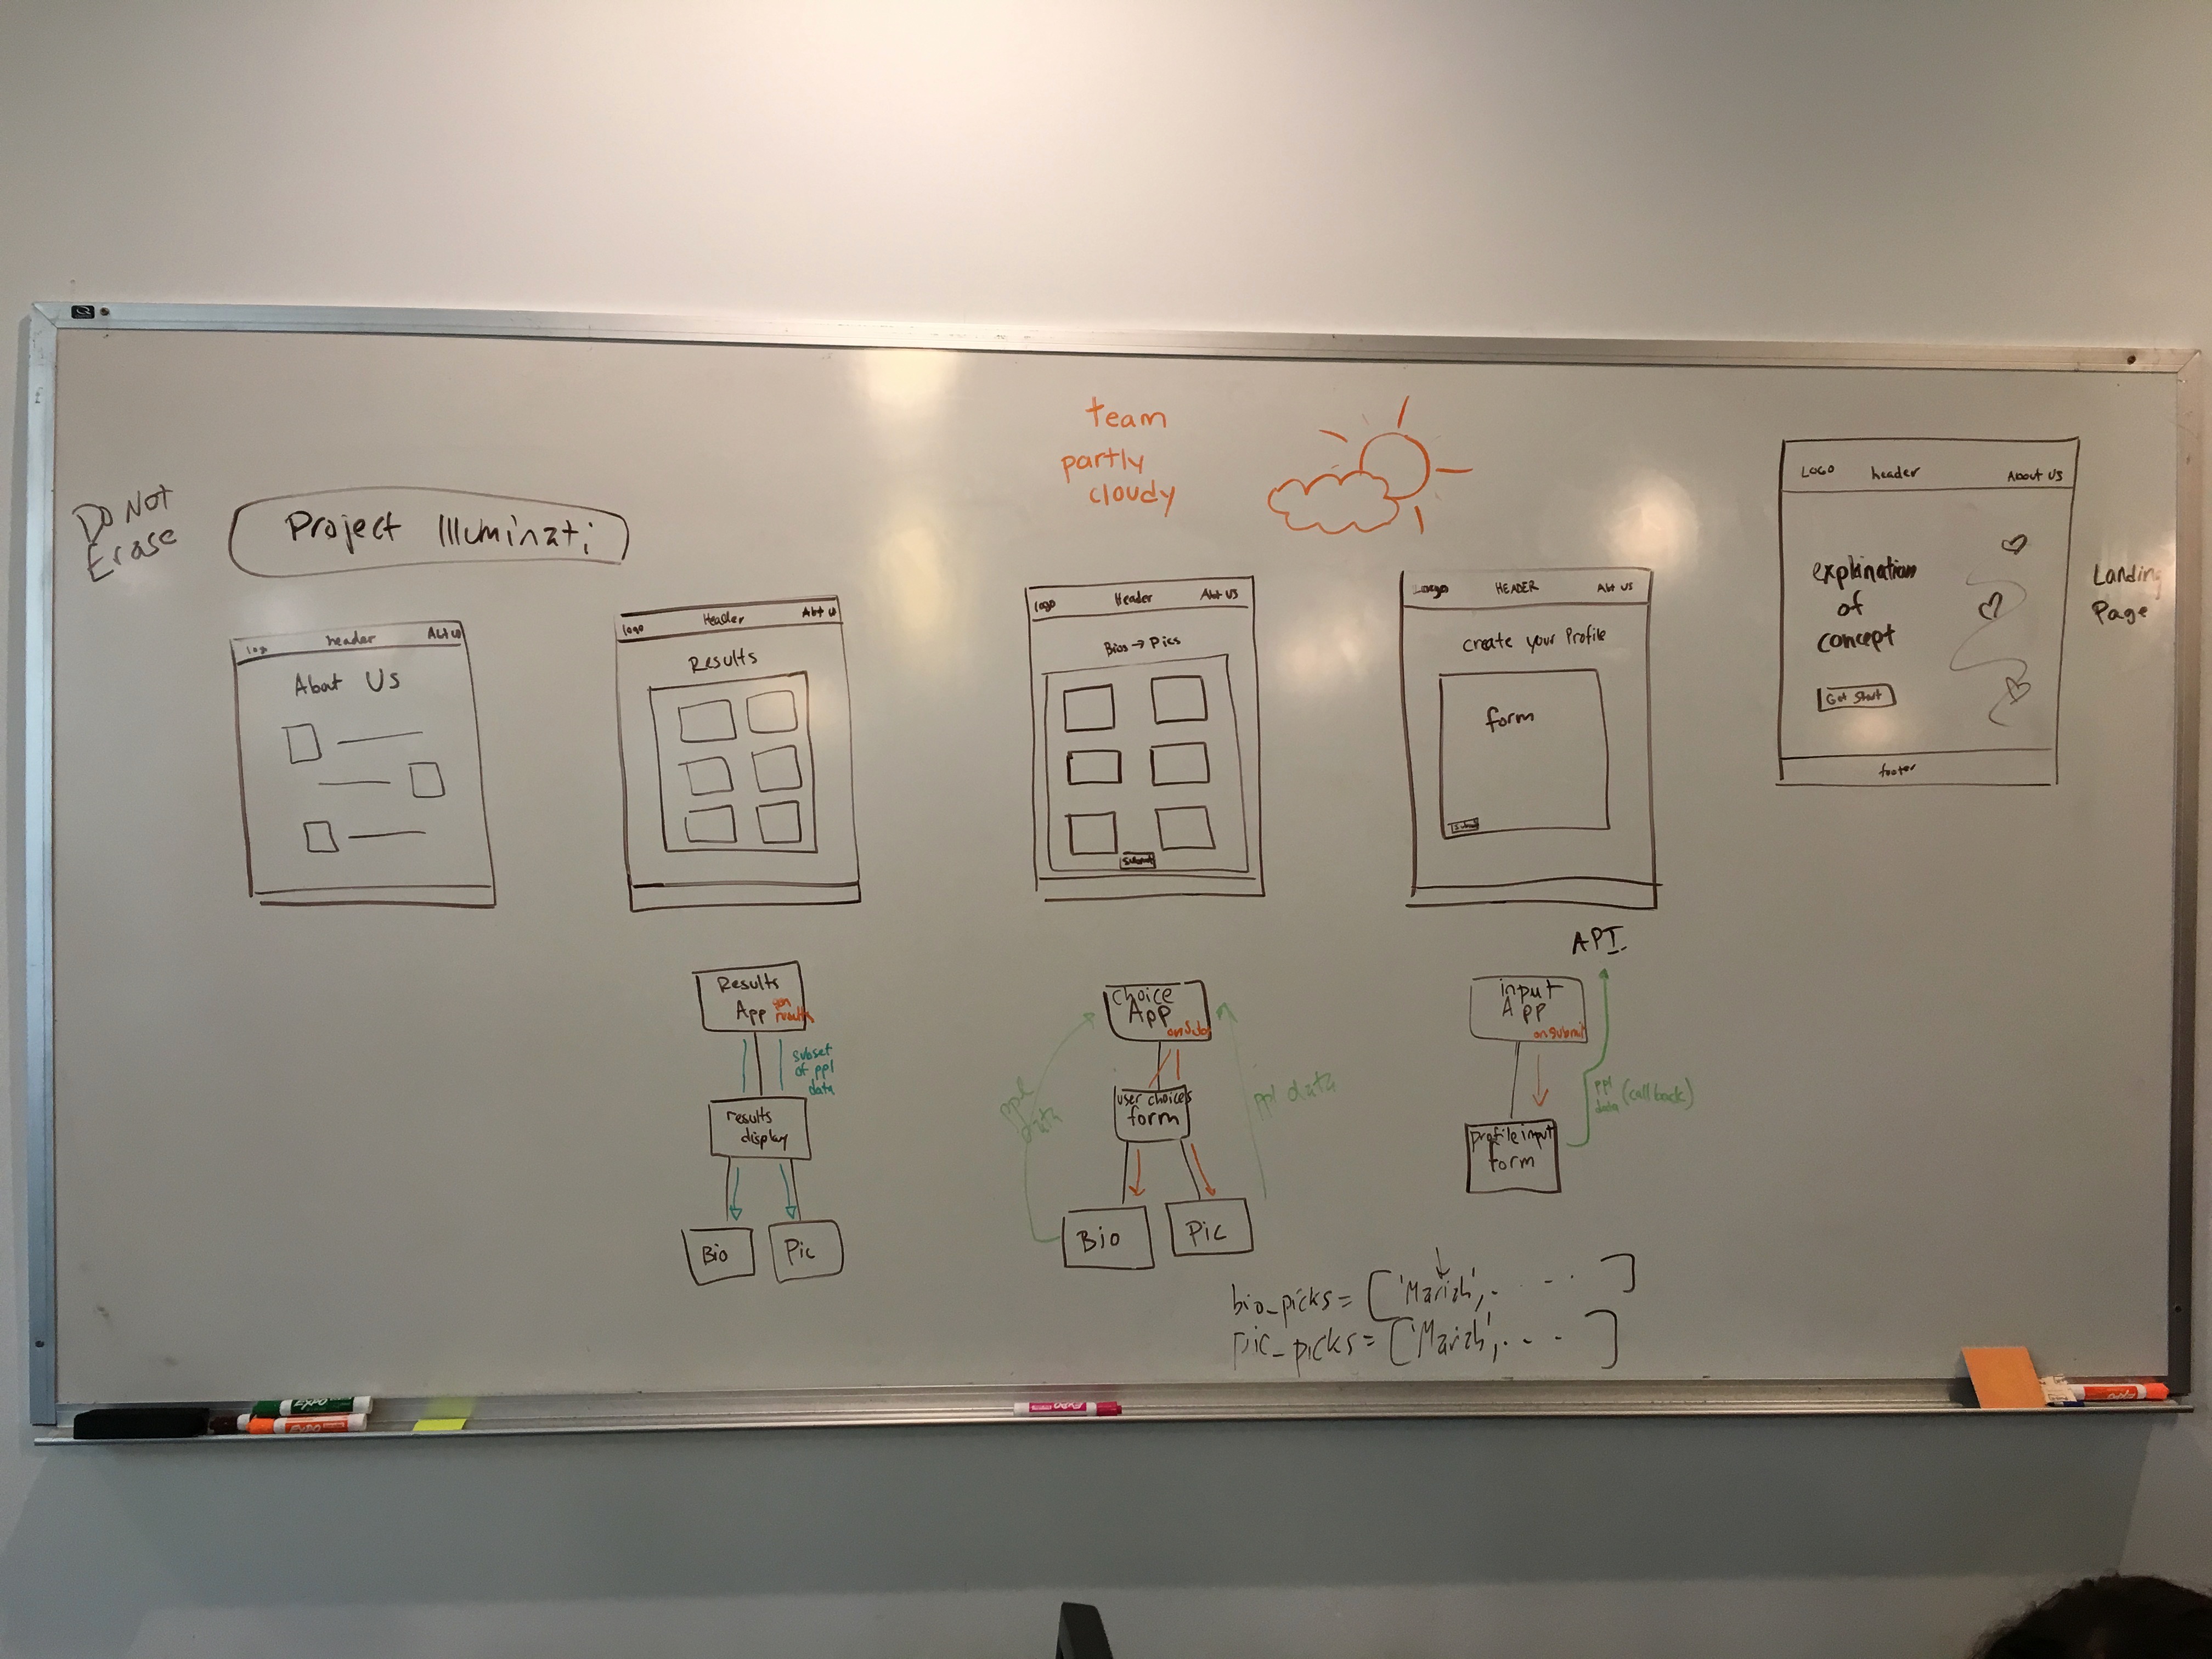 team
partly
cloudy
DO NOT
Erase
Project Illuminati
logo header Abt us
About Us
logo Header Abt us
Results
logo Header Abt US
Bios → Pics
submit
Logo HEADER Abt US
create your Profile
form
submit
LOGO header About US
explanation
of
concept
Get Start
footer
Landing
Page
Results
App
gen
results
subset
of ppl
data
results
display
Bio
Pic
choice
App
onSub
ppl
data
ppl data
user choices
form
Bio
Pic
API
input
App
onSubmit
ppl
data (callback)
profile input
form
bio_picks = ['Mariah', . . . . ]
pic_picks = ['Mariah', . . . ]
EXPO
EXPO
EXPO
EXPO